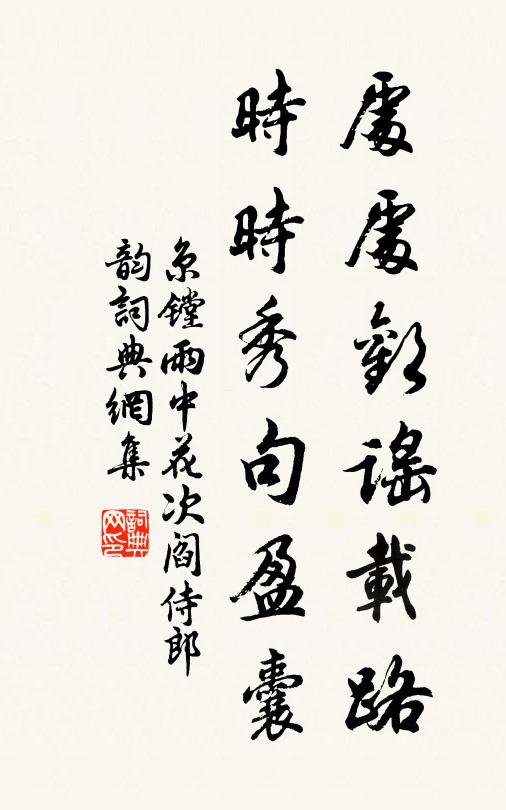 處處歡謠載路
時時秀句盈囊
京鏜雨中花次閻侍郎
韻詞典網集
詞典
网印